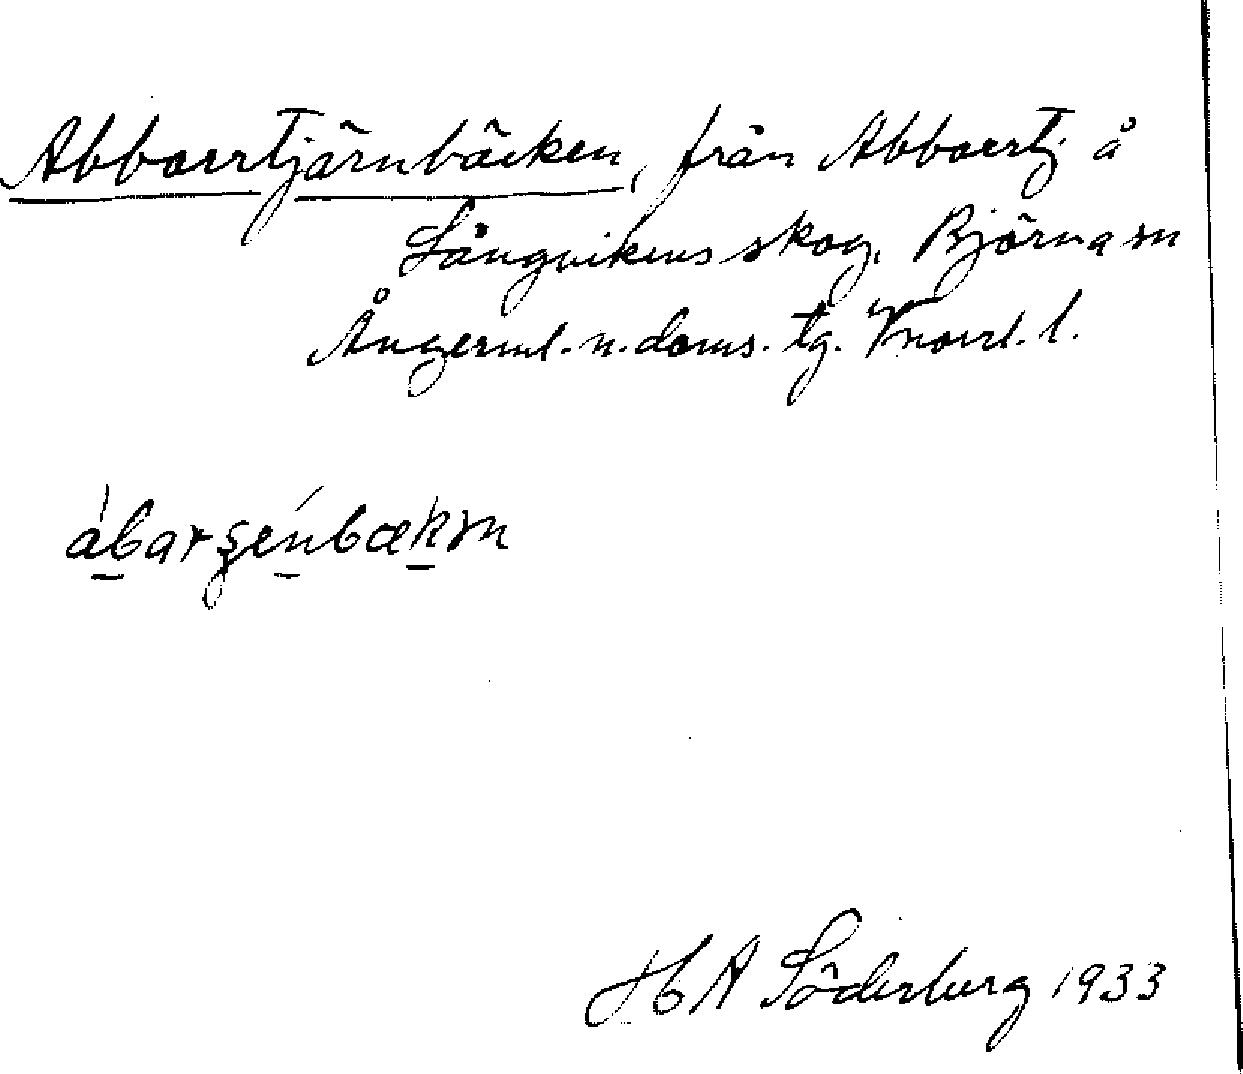 Abborrtjärnbäcken, från Abborrtj. å
Långvikens skog, Björna sn
Ångerml. n. doms. tg. Vnorrl. l.
H A Söderberg 1933